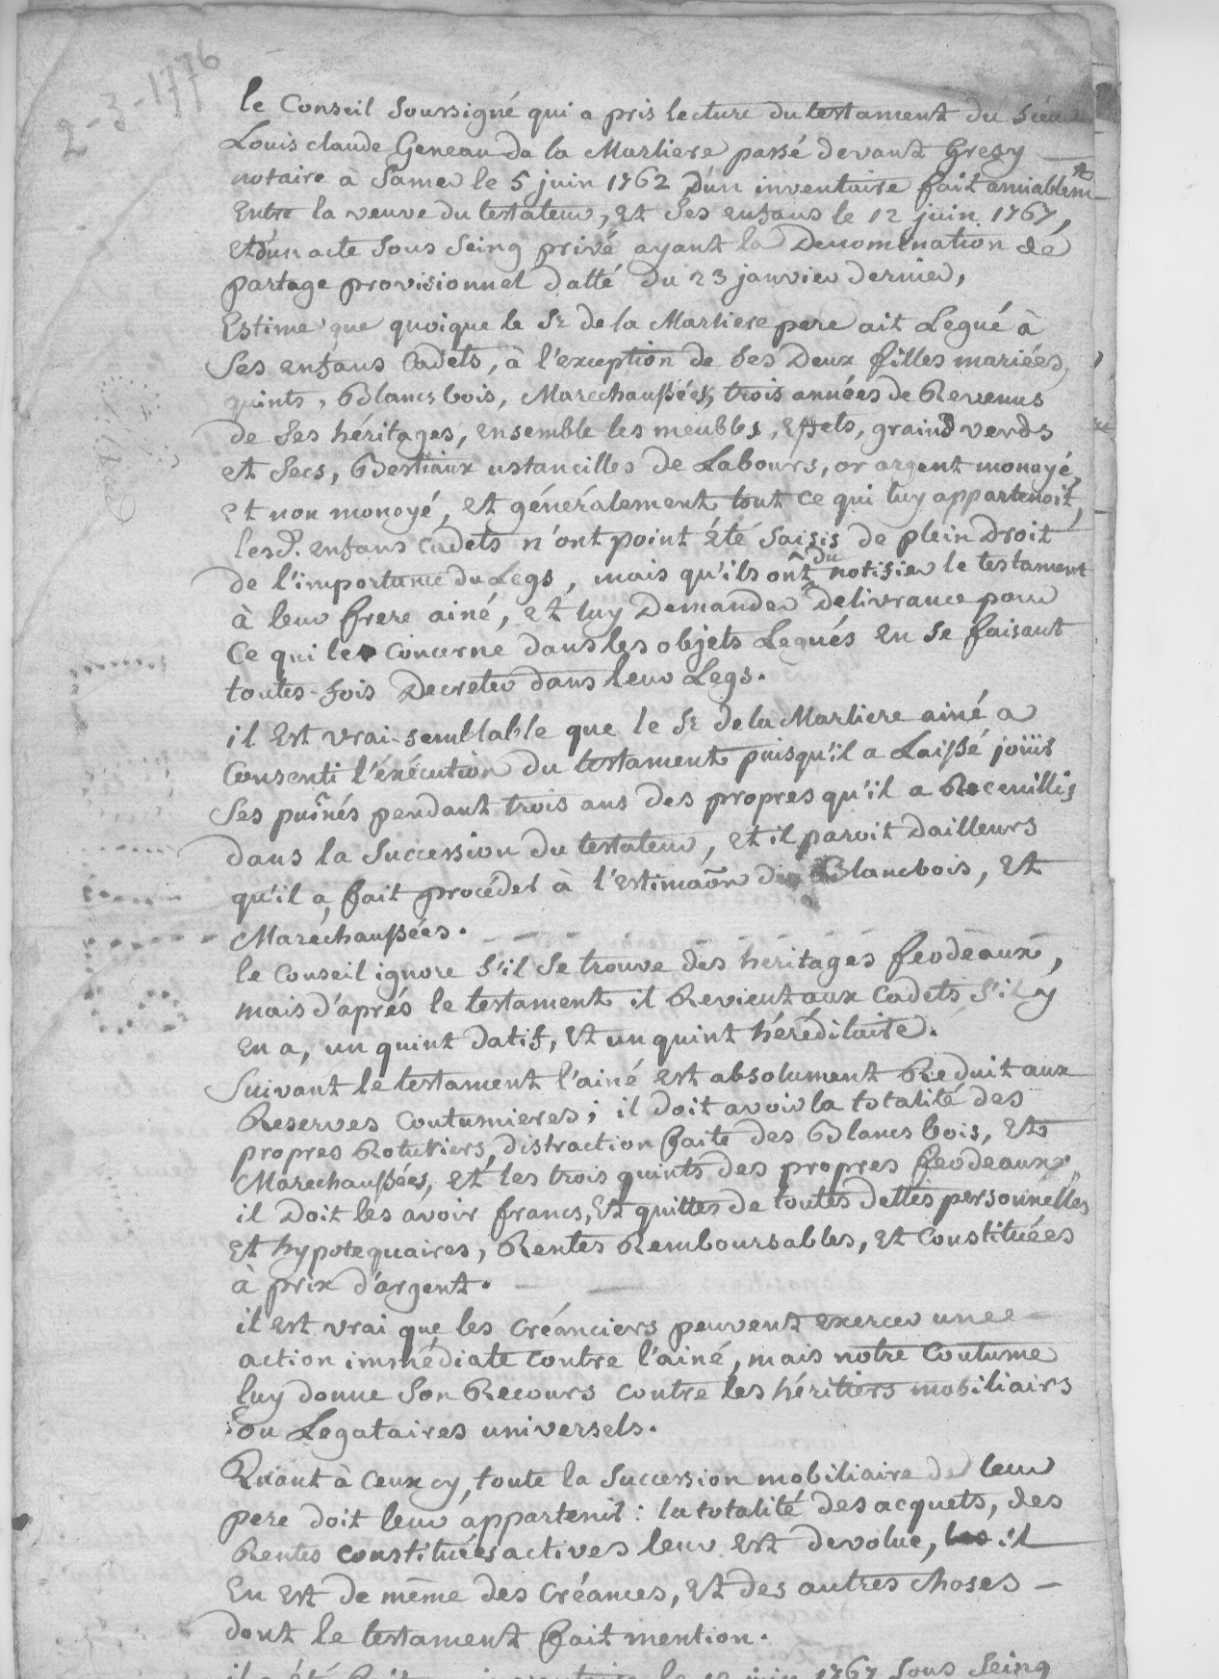 2-3-1776
le Conseil soussigné qui a pris lecture du testament du Sieur
Louis claude Geneau de la Marliere passé devant Gresy
notaire à Samer le 5 juin 1762 d'un inventaire fait amiablemt
Entre la veuve du testateur, et Ses enfans le 12 juin 1767,
et d'un acte Sous Seing privé ayant la Denomination de
partage provisionnel datté du 23 janvier dernier,
Estime que quoique le Sr de la Marliere pere ait Legué à
Ses enfans Cadets, à l'exception de Ses Deux filles mariées,
quints, Blancs bois, Marechaussées, trois années de Revenus
de Ses héritages, ensemble les meubles, Effets, grains verds
et Secs, Bestiaux ustancilles de Labours, or argent monoyé
et non monoyé, et généralement tout ce qui luy appartenoit,
lesd. enfans cadets n'ont point été Saisis de plein Droit
de l'importance du Legs, mais qu'ils ont du notifier le testament
à leur frere ainé, et luy Demander Delivrance pour
Ce qui les Concerne dans les objets Legués en Se faisant
toutes-fois Decreter dans leur Legs.
il Est vrai-semblable que le Sr de la Marliere ainé a
Consenti l'éxécution du testament puisqu'il a Laissé joüir
Ses puînés pendant trois ans des propres qu'il a Receuillis
dans la Succession du testateur, et il paroit Dailleurs
qu'il a fait procéder à l'estimaôn des Blancbois, et
Maréchaussées.
le Conseil ignore S'il Se trouve des héritages feodeaux,
mais d'aprés le testament il Revient aux Cadets S'il y
En a, un quint datif, et un quint héréditaire.
Suivant le testament l'ainé est absolument Reduit aux
Reserves Coutumieres; il doit avoir la totalité des
propres Roturiers, distraction faite des Blancs bois, et
Marechaussées, et les trois quints des propres feodeaux,
il Doit les avoir francs, et quittes de toutes dettes personnelles
et hypotequaires, Rentes Remboursables, et Constituées
à prix d'argent.
il est vrai que les Créanciers peuvent exercer une
action immédiate contre l'ainé, mais notre Coutume
luy donne Son Recours contre les héritiers mobiliairs
ou Legataires universels.
Quant à Ceux cy, toute la Succession mobiliaire de leur
pere doit leur appartenir: la totalité des acquets, des
Rentes constituées actives leur est devolue, il
En est de même des Créances, et des autres choses
dont le testament fait mention.